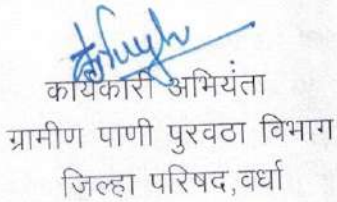 कार्यकारी अभियंता
ग्रामीण पाणी पुरवठा विभाग
जिल्हा परिषद,वर्धा